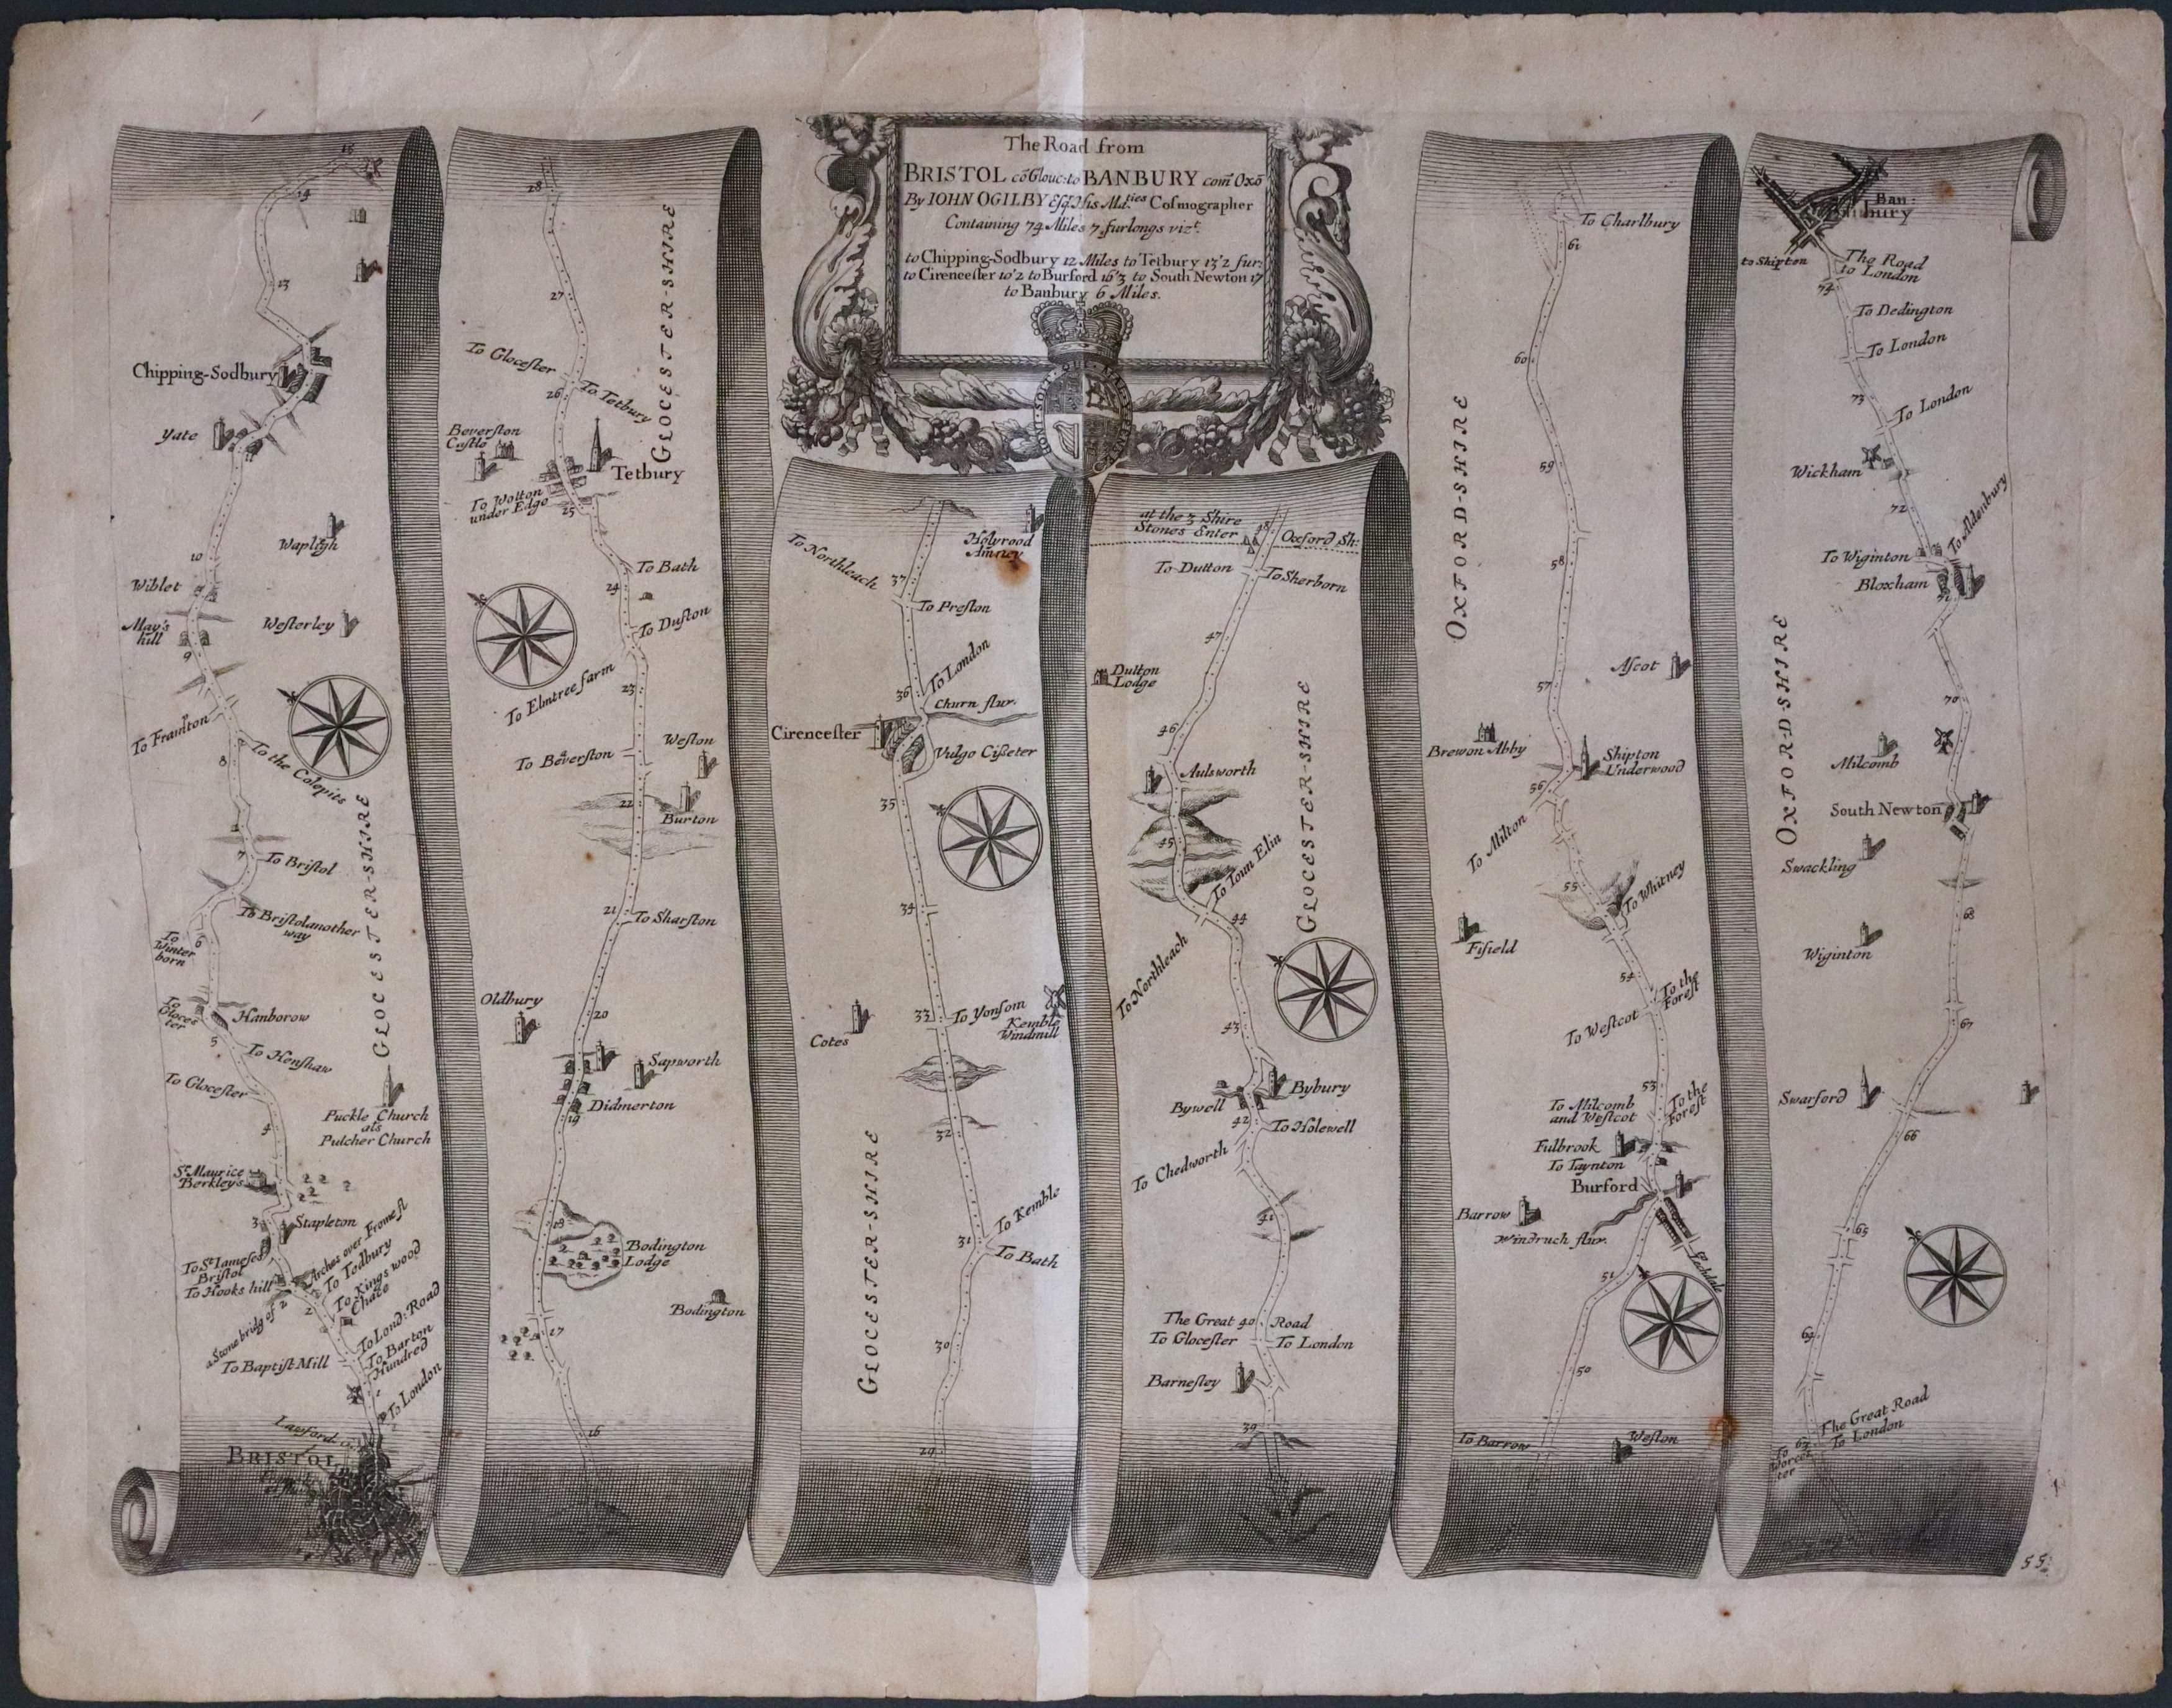 The Road from
BRISTOL cõ Glouc: to BANBURY com̃ Oxõ
By IOHN OGILBY Esq. His Ma.ties Cosmographer
Containing 74 Miles 7 furlongs vizt.
to Chipping-Sodbury 12 Miles to Tetbury 13'2 fur:
to Cirencester 10'2 to Burford 16'3 to South Newton 17
to Banbury 6 Miles.
HONI SOIT QUI MAL Y PENSE
15
14
13
Chipping-Sodbury
Yate
Wapligh
10
Wiblet
May's
hill
Westerley
9
To Framton
To the Colepits
8
7
To Bristol
To Bristol another
way
To
Winter
born
6
GLOCESTER-SHIRE
To
Gloces
ter
Hanborow
5
To Henshaw
To Glocester
Puckle Church
als
Pulcher Church
4
St. Maurice
Berkley's
3
Stapleton
Arches over Frome fl
To St. Iameses
Bristol
To Hooks hill
To Todbury
To Kings wood
Chace
a Stone bridg of 2
2
To Lond: Road
To Barton
Hundred
To Baptist Mill
To London
Lawford
BRISTOL
28
27
GLOCESTER-SHIRE
To Glocester
To Tetbury
26
Beverston
Castle
Tetbury
To Wotton
under Edge
25
To Bath
24
To Duston
To Elmtree farm
23
To Beverston
Weston
22
Burton
21
To Sharston
Oldbury
20
Sapworth
Didmerton
19
18
Bodington
Lodge
Bodington
17
16
Holyrood
Amney
To Northleach
37
To Preston
To London
36
Churn flur.
Cirencester
Vulgo Cisseter
35
34
33
To Yonsom
Kemble
Windmill
Cotes
32
GLOCESTER-SHIRE
To Kemble
31
To Bath
30
29
at the 3 Shire
Stones Enter
48
Oxford Sh:
To Dutton
To Sherborn
47
Dutton
Lodge
46
Aulsworth
45
To Toun Elin
GLOCESTER-SHIRE
44
To Northleach
43
Bybury
Bywell
42
To Holewell
To Chedworth
41
The Great 40 Road
To Glocester
To London
Barnesley
39
To Charlbury
61
60
OXFORD-SHIRE
59
58
Ascot
57
Brewon Abby
Shipton
Underwood
56
To Milton
55
To Whitney
Fifield
54
To the
Forest
To Westcot
53
To the
Forest
To Milcomb
and Westcot
Fulbrook
To Taynton
Burford
Barrow
Windruch flur.
Lechdale
51
50
To Barrow
Weston
Ban:
bury
to Shipton
The Road
to London
74
To Dedington
To London
73
To London
Wickham
72
To Aldenbury
To Wiginton
Bloxham
71
OXFORD-SHIRE
70
Milcomb
South Newton
Swackling
68
Wiginton
67
Swarford
66
65
64
The Great Road
To London
63
To
Worces
ter
55